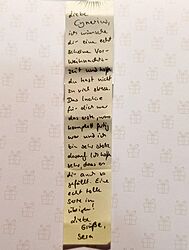 Liebe
ich wünsche
dir eine echt
schöne Vor-
weihnachts-
zeit und hoffe
du hast nicht
zu viel stress.
Das
für dich war
das erste, was
komplett fertig
war und ich
bin sehr stolz
darauf. Ich hoffe
sehr, dass es
dir auch so
gefällt. Eine
echt tolle
Zeit im
übrigen!
Liebe
Grüße,
Sara